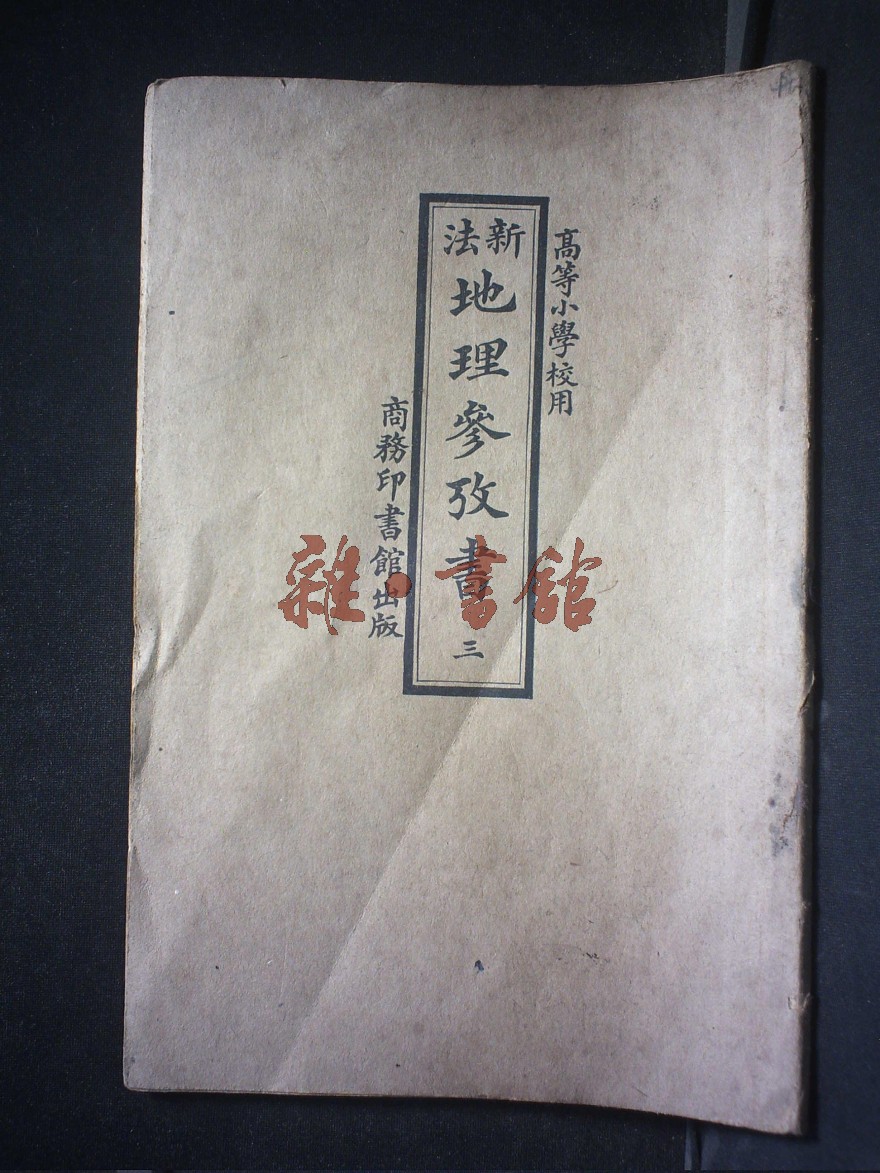 高等小學校用
新法
地理參攷書
三
商務印書館出版
雜·書館